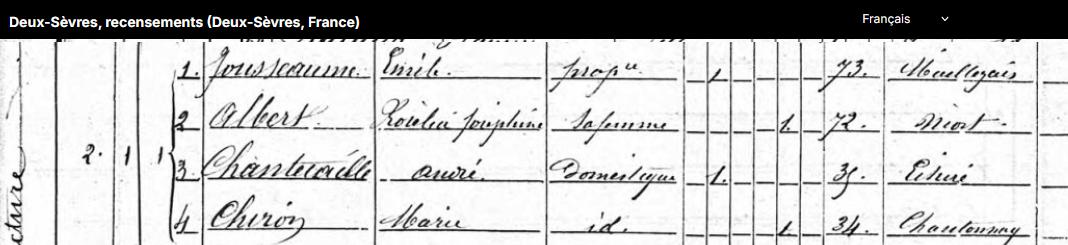 Deux-Sèvres, recensements (Deux-Sèvres, France) Français
1. Jousseaume Emile. propre 1 73. Maillezais
2 Albert Joséphine sa femme 1. 72. Niort
2. 1 1 3. Chantecaille André. Domestique 1. 35.
4 Chiron Marie id. 1 34. Chantonnay
cture